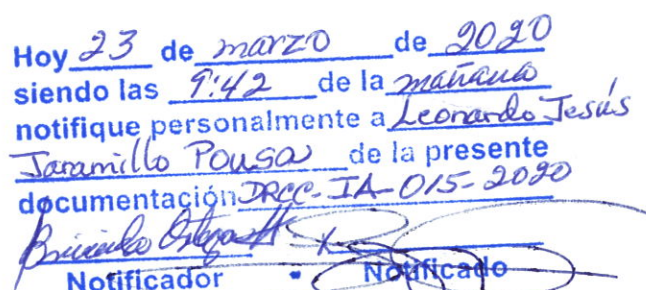 Hoy 23 de marzo de 2020
siendo las 9:42 de la mañana
notifique personalmente a Leonardo Jesús
Jaramillo Pousa de la presente
documentación DRCC-IA-015-2020
Notificador Notificado